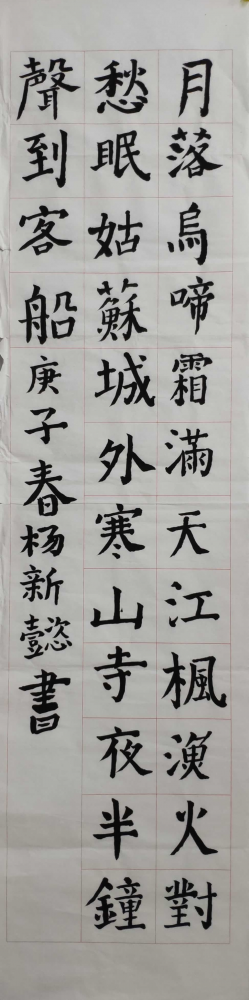 月落烏啼霜滿天江楓漁火對
愁眠姑蘇城外寒山寺夜半鐘
聲到客船庚子春杨新懿書